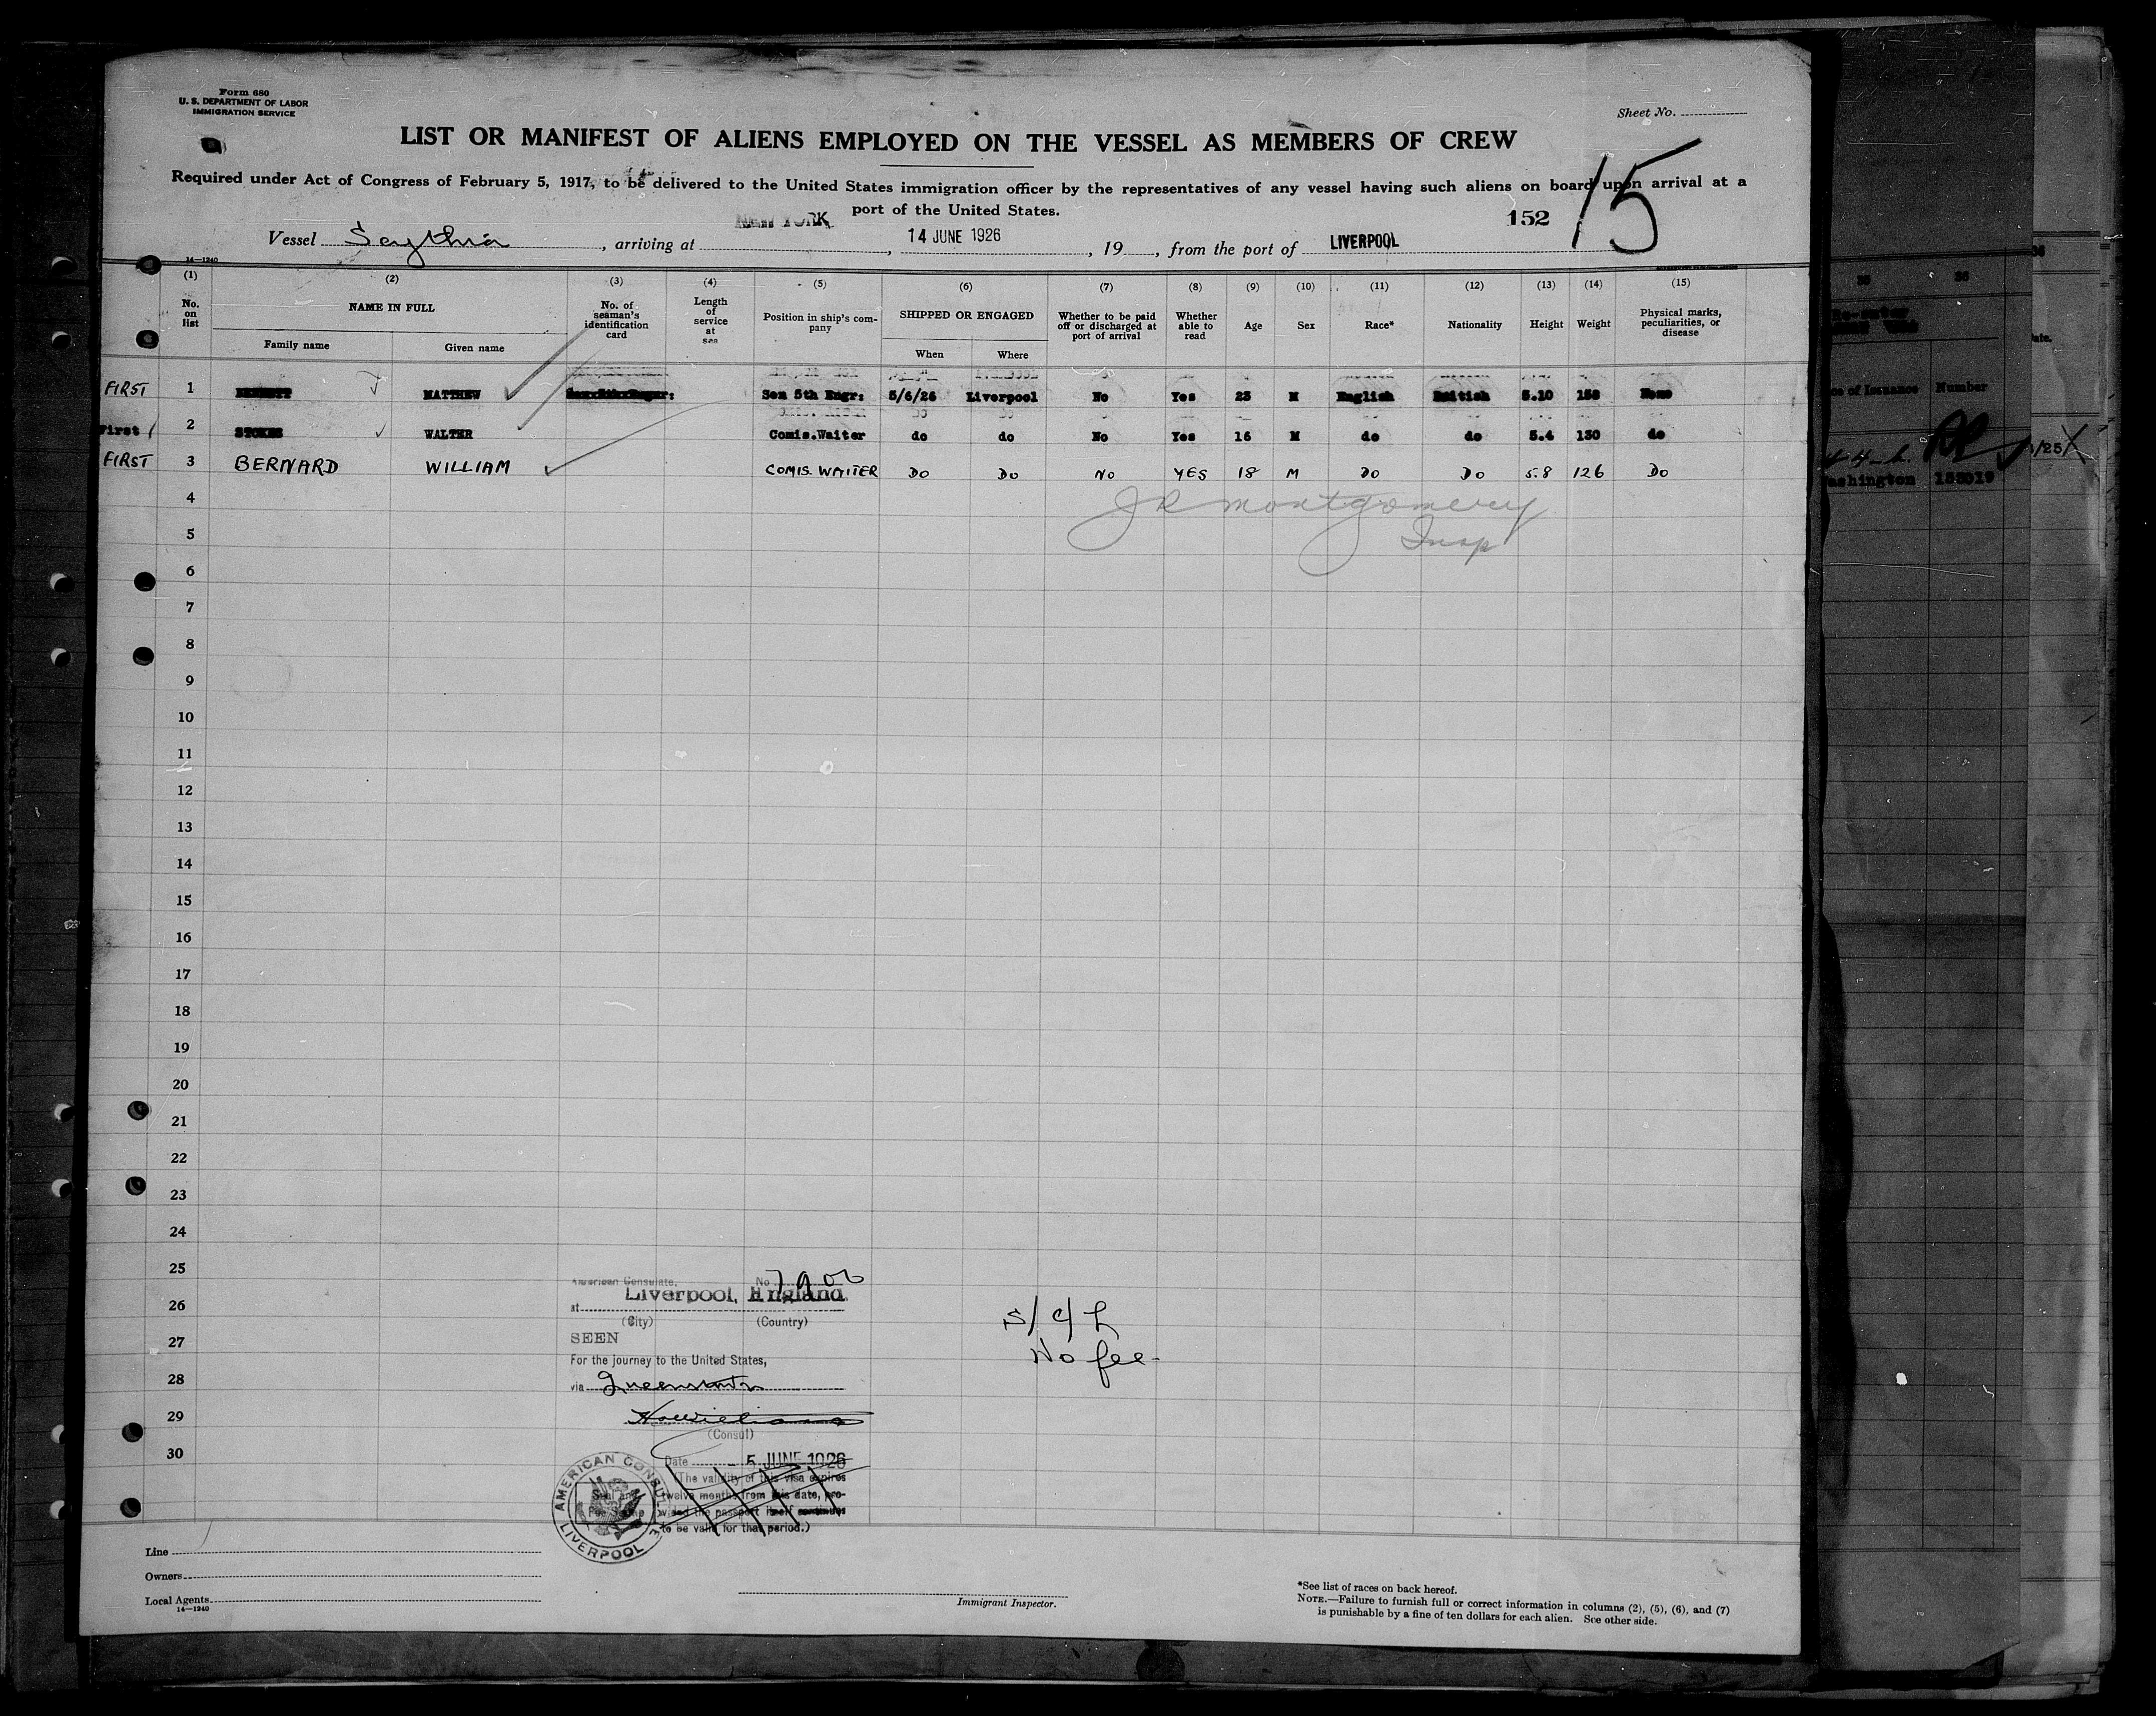 Form 680
U. S. DEPARTMENT OF LABOR
IMMIGRATION SERVICE
Sheet No.
LIST OR MANIFEST OF ALIENS EMPLOYED ON THE VESSEL AS MEMBERS OF CREW
Required under Act of Congress of February 5, 1917, to be delivered to the United States immigration officer by the representatives of any vessel having such aliens on board upon arrival at a
port of the United States.
152 15
Vessel Scythia, arriving at NEW YORK, 14 JUNE 1926, 19, from the port of LIVERPOOL
14—1240
(1) (2) (3) (4) (5) (6) (7) (8) (9) (10) (11) (12) (13) (14) (15)
No. on list
NAME IN FULL
Family name
Given name
No. of seaman's identification card
Length of service at sea
Position in ship's company
SHIPPED OR ENGAGED
When
Where
Whether to be paid off or discharged at port of arrival
Whether able to read
Age
Sex
Race*
Nationality
Height
Weight
Physical marks, peculiarities, or disease
FIRST 1 MATTHEW Sen 5th Engr: 5/6/26 Liverpool No Yes 23 M English British 5.10 158 None
First 2 STOKES WALTER Comis.Waiter do do No Yes 16 M do do 5.4 130 do
FIRST 3 BERNARD WILLIAM COMIS. WAITER DO DO NO YES 18 M DO DO 5.8 126 DO
4
J R Montgomery
5
Insp
6
7
8
9
10
11
12
13
14
15
16
17
18
19
20
21
22
23
24
25
26
27
28
29
30
American Consulate, No
at Liverpool, England
(City) (Country)
SEEN
For the journey to the United States,
via Queenstown
(Consul)
Date 5 JUNE 1926
(The validity of this visa expires
twelve months from this date, pro-
vided the passport itself continues
to be valid for that period.)
AMERICAN CONSULATE
LIVERPOOL
Seal and
Fee Stamp
No fee
Line
Owners
Local Agents
14—1240
Immigrant Inspector.
*See list of races on back hereof.
NOTE.—Failure to furnish full or correct information in columns (2), (5), (6), and (7)
is punishable by a fine of ten dollars for each alien. See other side.
36
of Issuance
Number
ashington